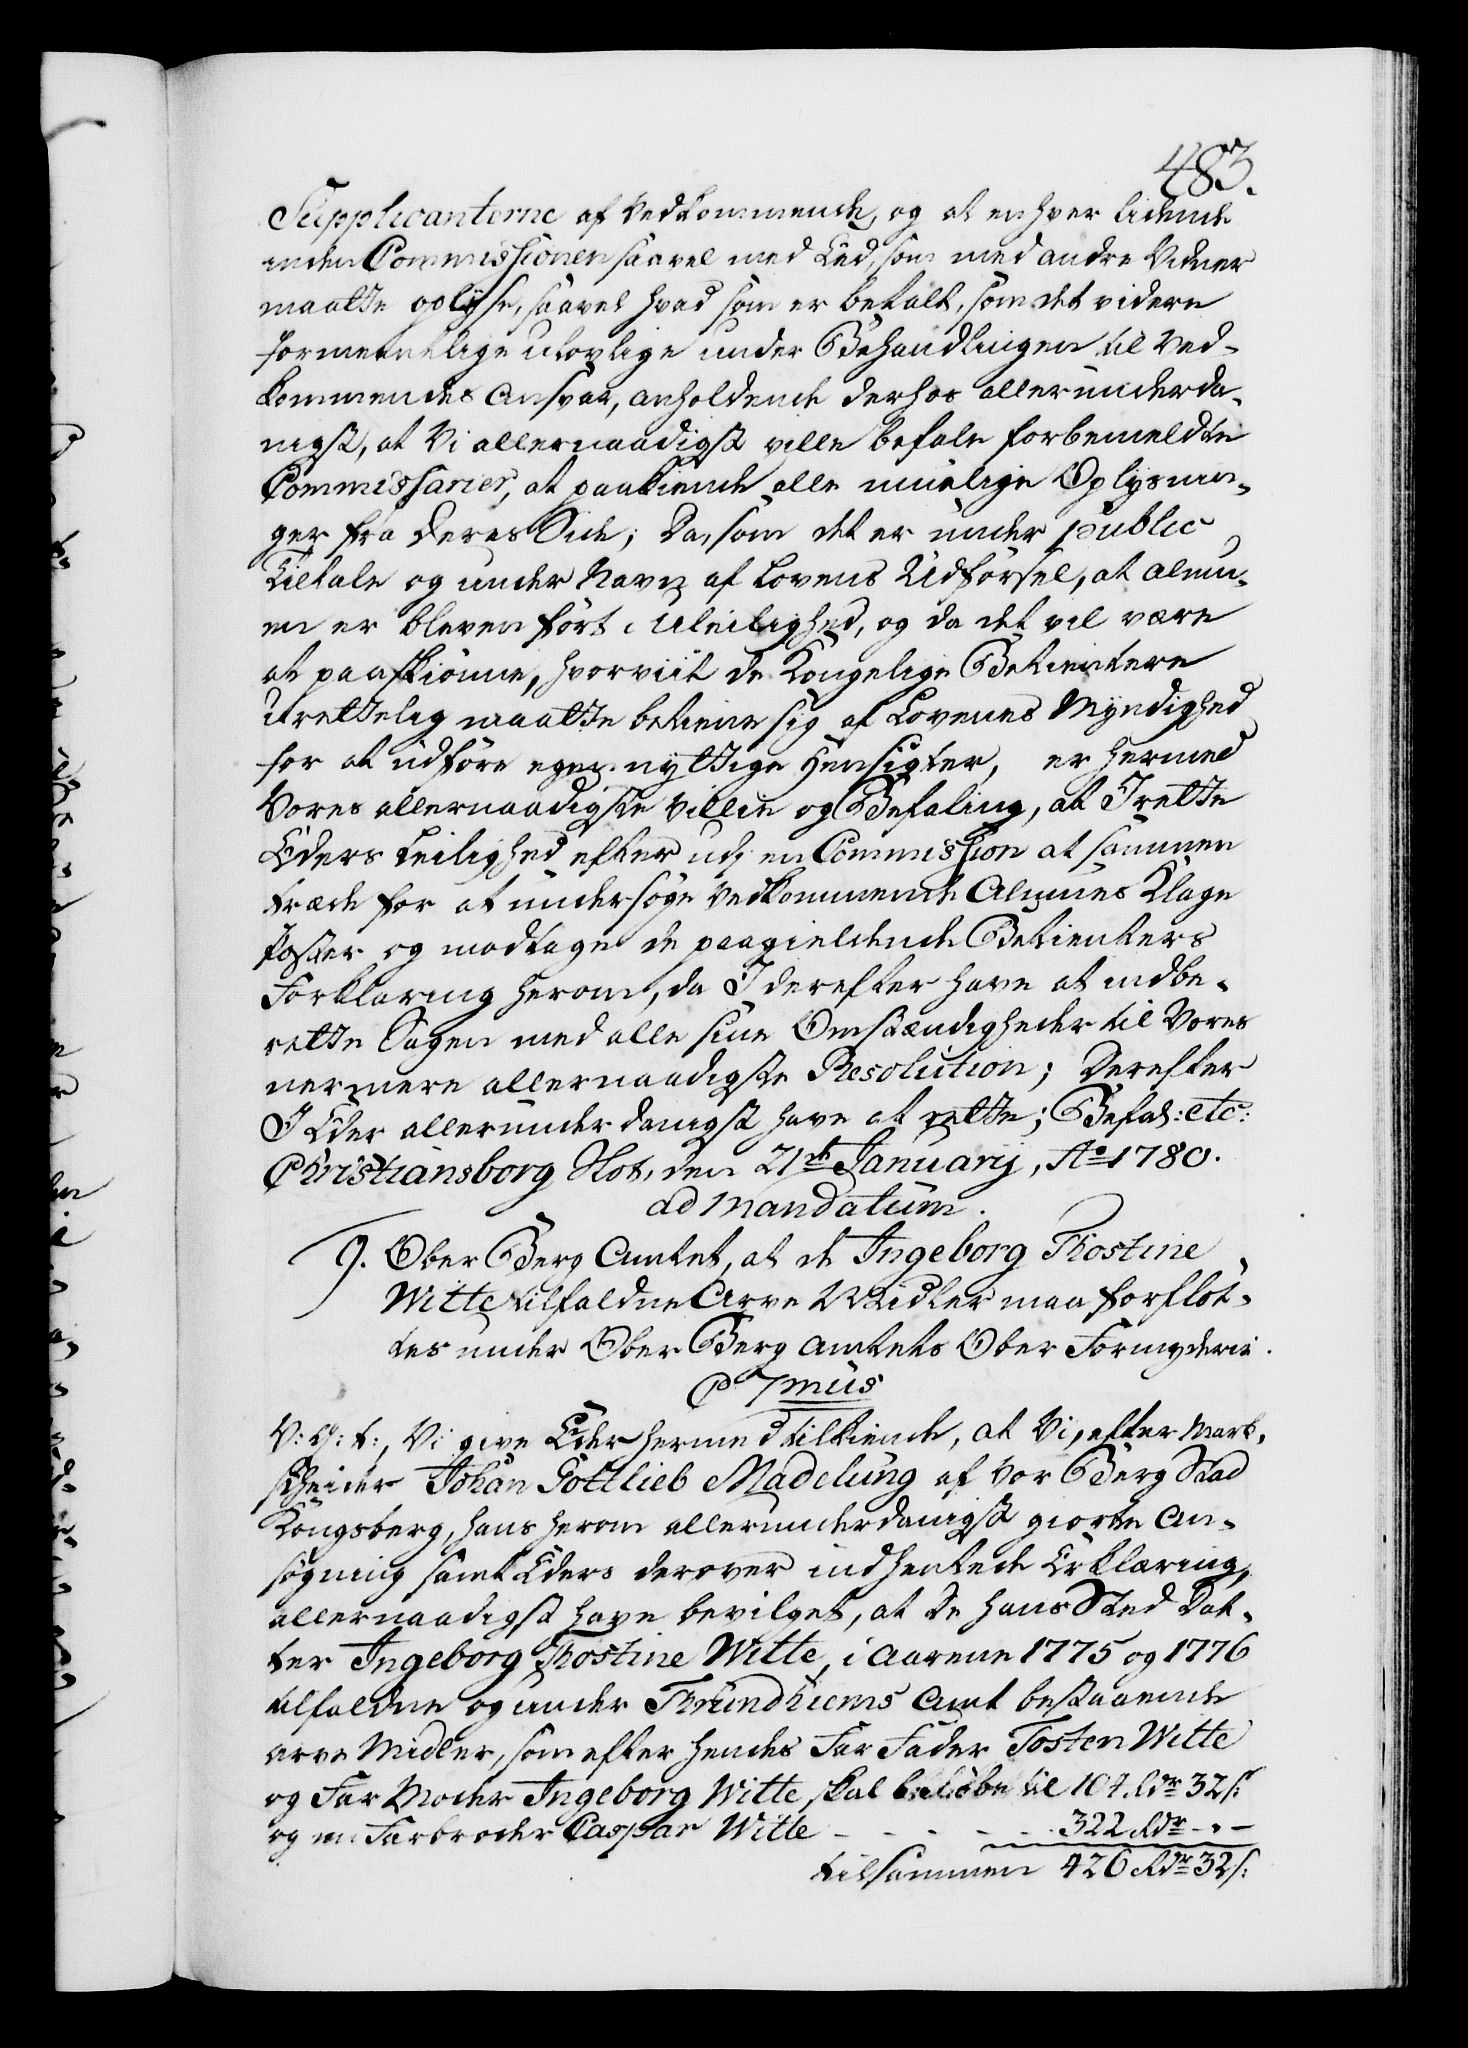 483.
Supplicanterne af Vedkommende, og at enhver lidende
inden Commissionen saavel med Eed, som med andre Vidner
maatte oplyse, saavel hvad som er betalt, som det videre
formeentlige ulovlige under Behandlingen til Ved-
kommendes Ansvar, anholdende derhos allerunderda-
nigst, at Vi allernaadigst ville befale forbemeldte
Commissarier, at paakiende alle muelige Oplysnin-
ger fra deres Side; Da, som det er under public
Tiltale og under Navn af Lovens Udførsel, at Almu-
en er bleven ført i Uleilighed, og da det vil være
at paaskiønne, hvorviit de Kongelige Betientere
urettelig maatte betiene sig af Lovenes Myndighed
for at udføre egennyttige Hensigter, er hermed
Vores allernaadigste Villie og Befaling, at I rette
Eders Leilighed efter udj en Commission at sammen
træde for at undersøge Vedkommende Almues Klage
Poster og modtage de paagieldende Betienters
Forklaring herom, da I derefter have at indbe-
rette Sagen med alle sine Omstændigheder til Vores
nermere allernaadigste Resolution; Derefter
I Eder allerunderdanigst have at rette; Befal: etc:
Christiansborg Slot, den 21de Januarij, Ao 1780.
ad Mandatum.
9. Ober Berg Amtet, at de Ingeborg Thostine
Witte tilfaldne Arve Midler maa forflöt-
tes under Ober Berg Amtets Ober Formynderie.
P 7mus
V: G: t:, Vi give Eder hermed tilkiende, at Vi, efter Mark,
scheider Johan Gottlieb Madelung af Vor Berg Stad
Kongsberg, hans herom allerunderdanigst giorte An-
søgning samt Eders derover indhentede Erklæring,
allernaadigst have bevilget, at de hans Sted Dat-
ter Ingeborg Thostine Witte, i Aarene 1775 og 1776
tilfaldne og under Thrundhiems Amt bestaaende
Arve Midler, som efter hendes Far Fader Tosten Witte
og Far Moder Ingeborg Witte, skal beløbe til 104. Rdr 32 s:
og en Farbroder Caspar Witte - - - - - - 322 Rdr - " -
tilsammen 426 Rdr 32 s: